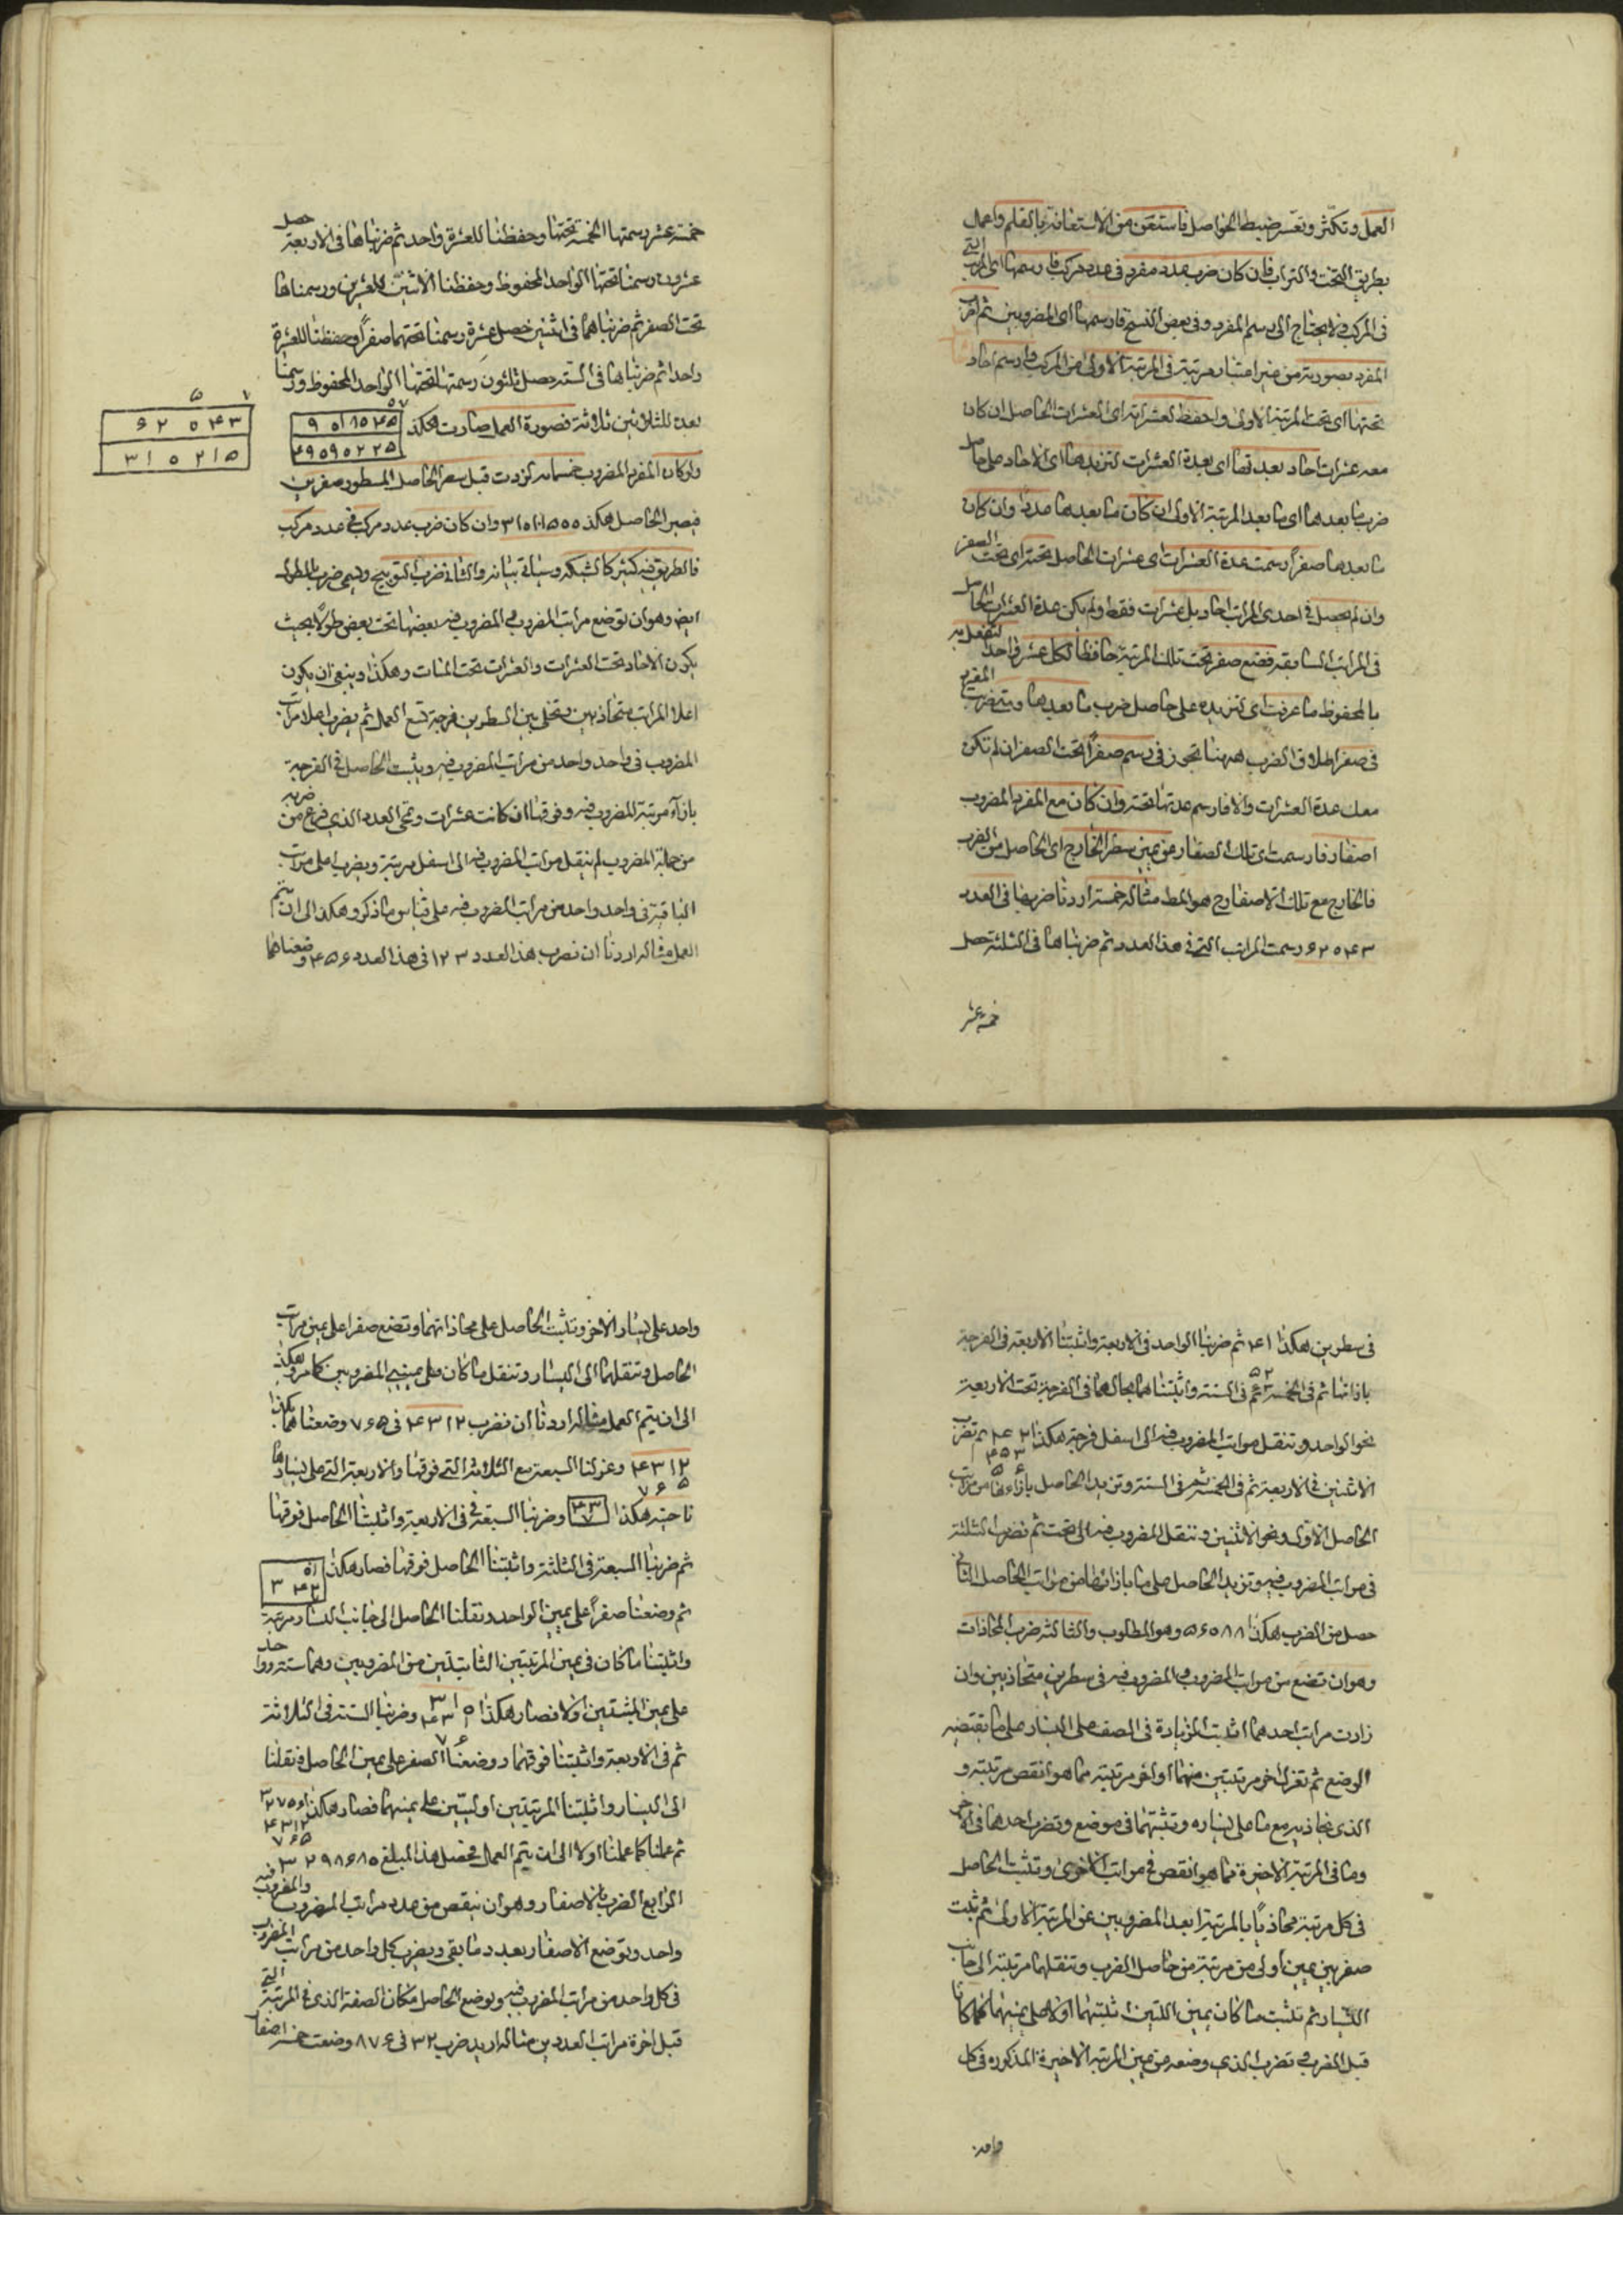 العمل وتكثر وتعسر ضبط الحواصل فاستعن من الاستعانة بالقلم واعمال
بطريق التخت والتراب فان كان ضرب عدد مفرد في عدد مركب فارسمها اى المراتب التي
في المركب ولا يحتاج الى رسم المفرد وفي بعض النسخ فارسمهما اى المضروبين ثم اضرب
المفرد بصورته من غير اعتبار مرتبته في المرتبة الاولى من المركب وارسم احاد
تحتها اى تحت المرتبة الاولى واحفظ لعشراته اى العشرات الحاصل ان كان
معه عشرات احاد بعدتها اى بعدة العشرات لتزيدها اى الاحاد على حاصل
ضرب ما بعدها اى ما بعد المرتبة الاولى ان كان ما بعدها عددا وان كان
ما بعدها صفراً رسمت عدة العشرات اى عشرات الحاصل تحته اى تحت الصفر
وان لم يحصل في احدى المراتب احاد بل عشرات فقط ولم يكن عدة العشرات الحاصل
في المراتب السابقة فضع صفر تحت تلك المرتبة حافظا لكل عشرة واحدا لتفعل به
بالمحفوظ ما عرفت اى لتزيده على حاصل ضرب ما بعدها ومتى ضربت المفرد
في صفر اطلاق الضرب ههنا تجوز في رسم صفراً تحت الصفر ان لم تكن
معك عدة العشرات والا فارسم عدتها تحته وان كان مع المفرد المضروب
اصفار فارسمت اى تلك الصفار عن يمين سطر الخارج اى الحاصل من الضرب
فالخارج مع تلك الاصفار ح هو المط مثاله خمسة اردنا ضربها في العدد
۶۲۰۴۳ رسمت المراتب التي في هذا العدد ثم ضربناها في الثلثة حصل
خمسة عشر
خمسة عشر رسمتها الخمسة تحتها وحفظنا للعشرة واحد ثم ضربناها في الاربعة حصل
عشرون رسمنا تحتها الواحد المحفوظ وحفظنا الاثنين للعشرين ورسمناها
تحت الصفر ثم ضربناها في اثنين حصل عشرة رسمنا تحتهما صفراً وحفظنا للعشرة
واحدا ثم ضربناها في الستة حصل ثلثون رسمتها تحتها الواحد المحفوظ ورسمنا
بعده للثلاثين ثلاثة فصورة العمل صارت هكذا
۶ ۲ ۰ ۴ ۳
۳ ۱ ۰ ۲ ۱ ۵
ولو كان المفرد المضروب خمسمائه لزدت قبل سطر الحاصل المسطور صفرين
فيصير الحاصل هكذا وان كان ضرب عدد مركب في عدد مركب
فالطريق فيه كثير كالشبكة وسياتي بيانه والثاني ضرب التوبيخ ويسمى ضرب بالطول
ايض وهو ان توضع مراتب المضروب والمضروب فيه بعضها تحت بعض طولاً بحيث
يكون الاحاد تحت العشرات والعشرات تحت المئات وهكذا وينبغى ان يكون
اعلا المراتب متحاذيين وتخلى بين السطرين فرجة تسع العمل ثم يضرب اعلا مراتب
المضروب في واحد واحد من مراتب المضروب فيه ويثبت الحاصل في الفرجة
بازاء مرتبة المضروب فيه وفوقها ان كانت عشرات وتمحى العدد الذي فرغ من ضربه
من جملة المضروب ثم ينقل مراتب المضروب فيه الى اسفل مرتبة ويضرب اعلى مراتب
الباقية في واحد واحد من مراتب المضروب فيه على قياس ما ذكر وهكذا الى ان يتم
العمل مثاله اردنا ان نضرب هذا العدد ۱۲۳ في هذا العدد ۴۵۶ وضعناهما
في سطرين هكذا ثم ضربنا الواحد في الاربعة واثبتنا الاربعة في الفرجة
بازائها ثم في الخمسة ثم في الستة واثبتناهما بحالهما في الفرجة تحت الاربعة
نمحو الواحد وتنقل مراتب المضروب فيه الى اسفل فرجة هكذا ثم تضرب
الاثنين في الاربعة ثم في الخمسة ثم في الستة وتزيد الحاصل بازاءها من مراتب
الحاصل الاول ونمحو الاثنين وننقل المضروب فيه الى تحت ثم نضرب الثلثة
في مراتب المضروب فيه وتزيد الحاصل على ما بازائها من مراتب الحاصل الثاني
حصل من الضرب هكذا ۵۶۰۸۸ وهو المطلوب والثالثة ضرب المحاذات
وهو ان تضع من مراتب المضروب والمضروب فيه في سطرين متحاذيين وان
زادت مراتب احدهما اثبت الزيادة في الصف على اليسار على ما يقتضيه
الوضع ثم تعزل اخر مرتبتين منهما او اخر مرتبة مما هو انقص مرتبة و
الذي يحاذيه مع ما على يساره وتثبتهما في موضع وتضرب احدهما في الآخر
وما في المرتبة الاخيرة مما هو انقص في مراتب الاخرى وتثبت الحاصل
في كل مرتبة محاذياً بالمرتبة ابعد المضروبين عن المرتبة الاولى ثم تثبت
صفر يمين اولى من مرتبة من حاصل الضرب وتنقلها مرتبة الى جانب
اليسار ثم تثبت ما كان يمين اللتين اثبتهما اولا على يمينهما كما كانا
قبل الضرب ثم تضرب الذي وضعه من يمين المرتبة الاخيرة المذكورة في كل
واحد
واحد على يسار الآخر وتثبت الحاصل على محاذاتهما وتضع صفرا على يمين مراتب
الحاصل وتنقلها الى اليسار وتنقل ما كان على يمينى المضروبين كما مر وهكذا
الى ان يتم العمل مثاله اردنا ان نضرب ۴۳۱۲ في ۷۶۵ وضعناهما هكذا
۴۳۱۲ وعزلنا السبعة مع الثلاثة التي فوقها والاربعة التي على يسارها
۷۶۵
ناحية هكذا وضربنا السبعة في الاربعة واثبتنا الحاصل فوقها
ثم ضربنا السبعة في الثلثة واثبتنا الحاصل فوقها فصار هكذا
ثم وضعنا صفراً على يمين الواحد ونقلنا الحاصل الى جانب اليسار مرتبة
واثبتنا ما كان في يمين المرتبتين الثابتتين من المضروبين وهما ستة وواحد
على يمين المثبتين اولا فصار هكذا وضربنا الستة في الثلاثة
ثم في الاربعة واثبتنا فوقهما ووضعنا الصفر على يمين الحاصل فنقلنا
الى اليسار واثبتنا المرتبتين اوليين على يمينهما فصار هكذا
ثم عملنا كما عملنا اولا الى ان يتم العمل فحصل هذا المبلغ ۳۲۹۸۶۸۰
الرابع الضرب بالاصفار وهو ان ينقص من عدد مراتب المضروب والمضروب فيه
واحد وتوضع الاصفار بعدد ما بقى ويضرب كل واحد من مراتب المضروب
في كل واحد من مراتب المضروب فيه ويوضع الحاصل مكان الصفر الذي في المرتبة التي
قبل اخرة مراتب العددين مثاله اريد ضرب ۳۲ في ۸۷۶ وضعت خمسة اصفار